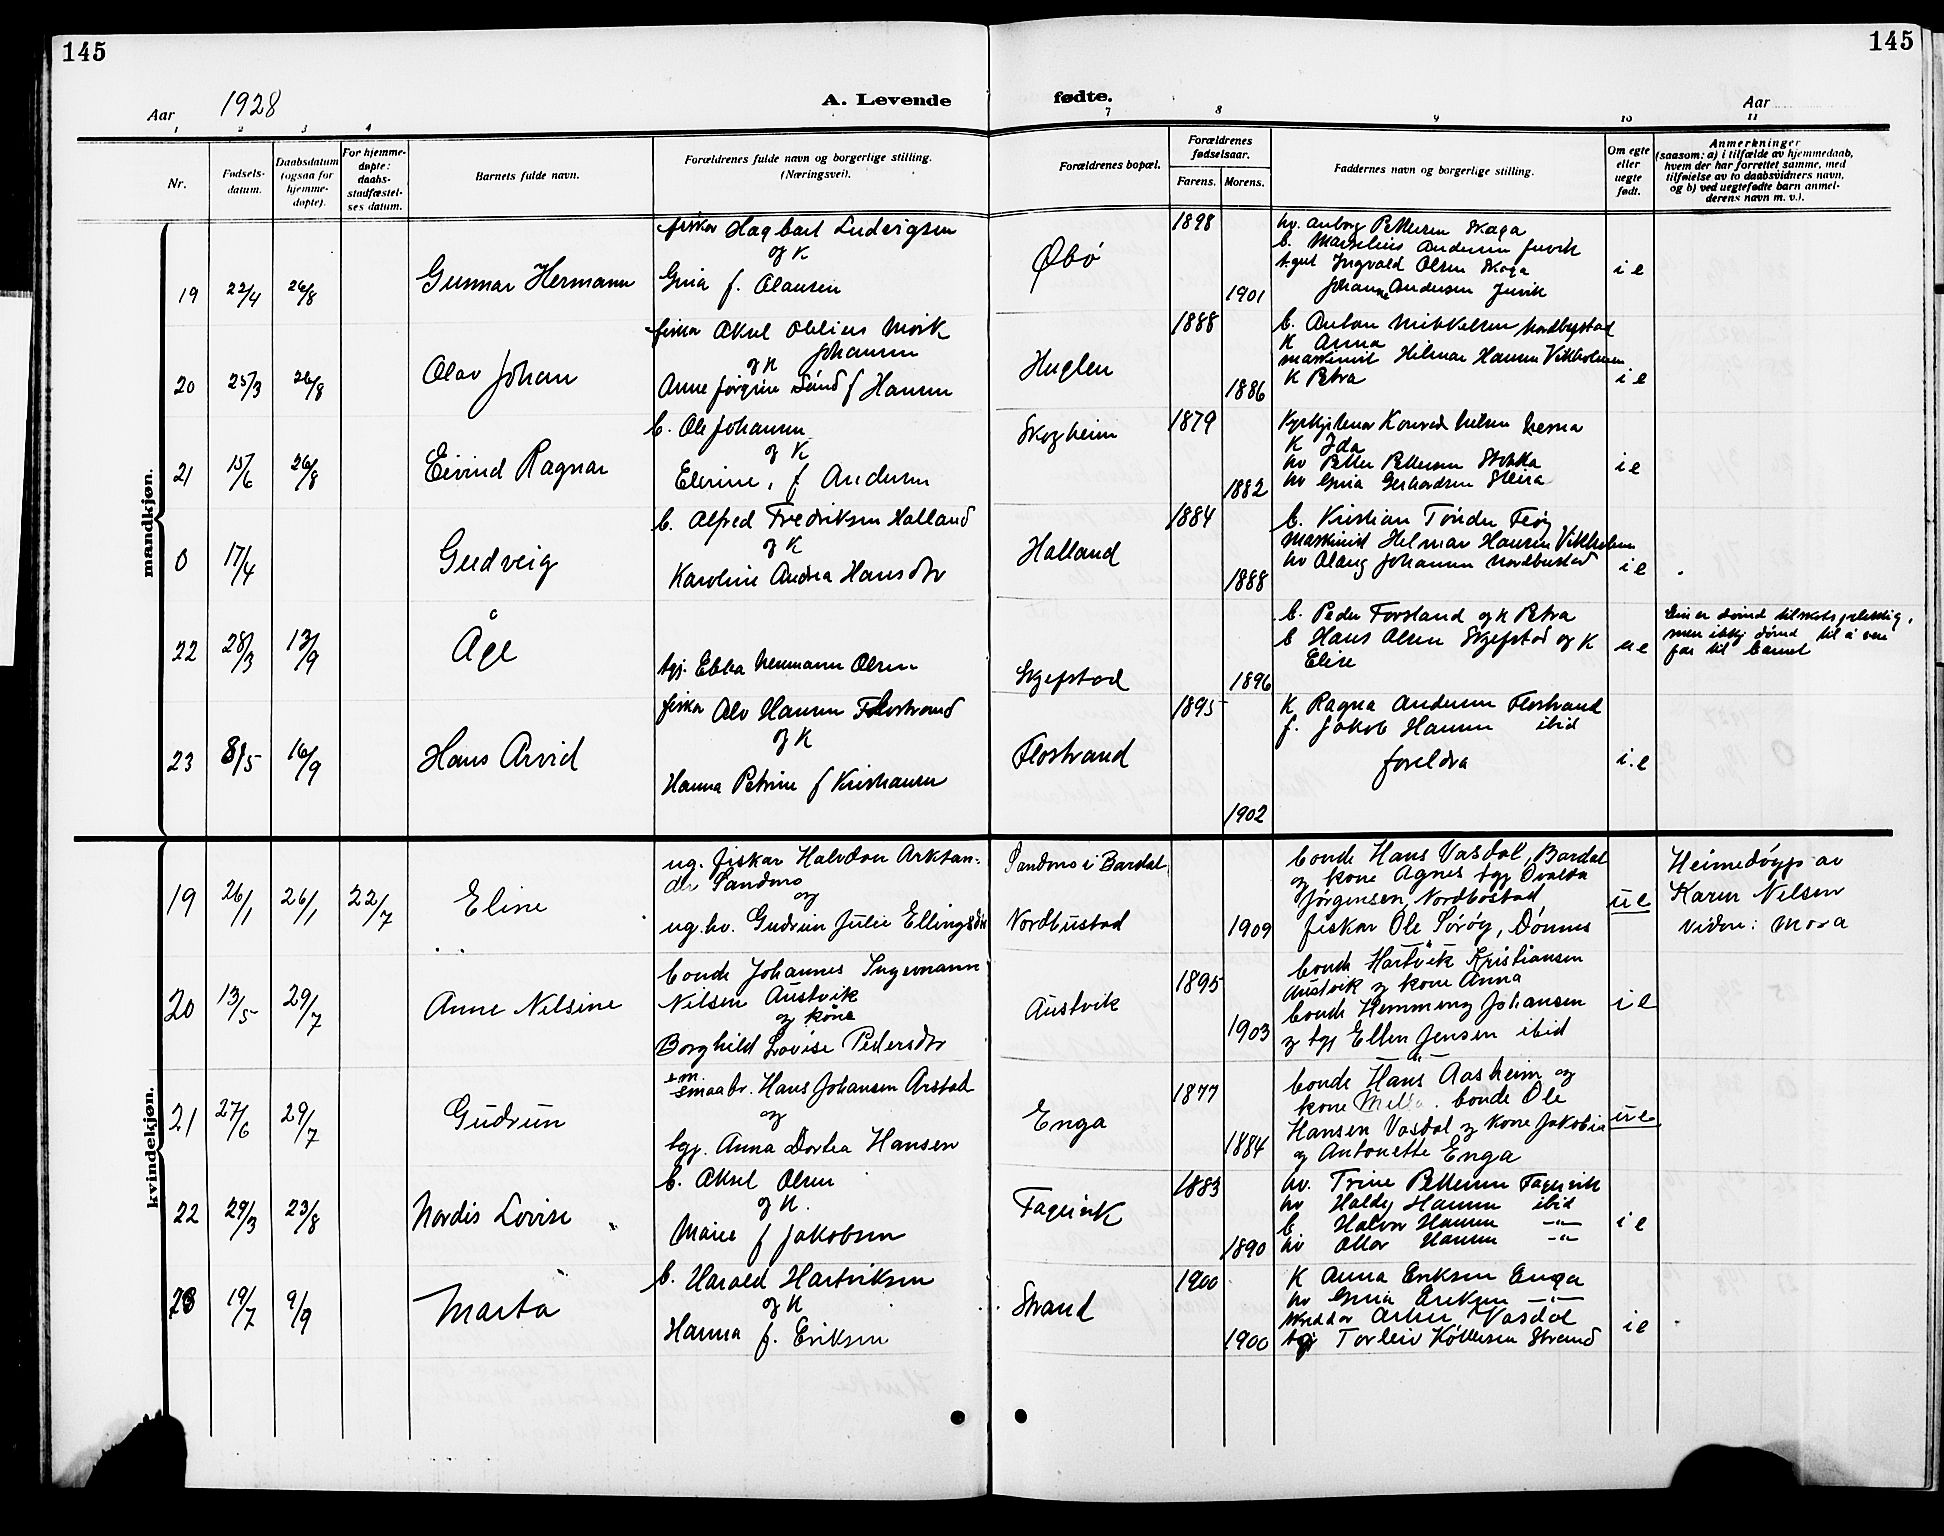 145
145
Aar 1928
A. Levende fødte.
Aar
1 2 3 4 7 8 9 10 11
Nr.
Fødsels-
datum.
Daabsdatum
(ogsaa for
hjemme-
døpte).
For hjemme-
døpte:
daabs-
stadfæstel-
ses datum.
Barnets fulde navn.
Forældrenes fulde navn og borgerlige stilling.
(Næringsvei).
Forældrenes bopæl.
Forældrenes
fødselsaar.
Farens. Morens.
Faddernes navn og borgerlige stilling.
Om egte
eller
uegte
født.
Anmerkninger
(saasom: a) i tilfælde av hjemmedaab,
hvem der har forrettet samme, med
tilføielse av to daabsvidners navn,
og b) ved uegtefødte barn anmel-
derens navn m. v.).
mandkjøn.
19 22/4 26/8 Gunnar Hermann
fisker Hagbart Ludvigsen
og K
Gina f. Olausen
Øbø
1898
1901
hv. Anborg Pettersen Skaga
b. Marselius Andersen Juvik
Ingvald Olsen Skaga
Johanne Andersen Juvik
i e
20 25/3 26/8 Olav Johan
fisker Aksel Oblius Mork
Johansen
og K
Anne Jørgine f Hansen
Huglen
1888
1886
b. Anton Mikkelsen Nordbustad
K Anna
maskinist Hilmar Hansen Vikholmen
K Petra
i e
21 15/6 26/8 Eivind Ragnar
b. Ole Johansen
og K
Elerine, f Andersen
Skogheim
1879
1882
Kyrkjetenar Konrad Nilsen Nesna
K Ida
hv Petter Pettersen Stokka
hv Gina Gerhardsen Steira
i e
0 17/4 Gudveig
b. Alfred Fredriksen Halland
og K
Karoline Andrea Hansdtr
Halland
1884
1888
b. Kristian Tønder
maskinist Hilmar Hansen Vikholmen
hv Olaug Johansen Nordbustad
i e
22 28/3 13/9 Åge
tgj. Ebba Neumann Olsen
Skjefstad
1896
b. Peder Forsland og K Petra
b Hans Olsen Skjefstad og K
Elise
u e
Ein er dømd til
men ikkje dømd til å vere
far til barnet
23 8/5 16/9 Hans Arvid
fisker Alv Hansen Flostrand
og K
Hanna Petrine f Kristiansen
Flostrand
1895
1902
K Ragna Andersen Flostrand
f. Jakob Hansen ibid
foreldra
i. e
kvindekjøn.
19 26/1 26/1 22/7 Eline
ug. fiskar Halvdan Arktan-
der Sandmo
og
ug. hv. Gudrun Julie Ellingsdtr
Sandmo i Bardal
Nordbustad
1909
bonde Hans Vasdal, Bardal
og kone Agnes tgj Ovalda
Jørgensen, Nordbostad
fiskar Ole Sørøy, Dønnes
u e
Heimedøypt av
Karen Nilsen
vidne: Mora
20 13/5 29/7 Anne Nilsine
bonde Johannes Ingemann
Nilsen Austvik
og kone
Borghild Lovise Pedersdtr
Austvik
1895
1903
bonde Hartvik Kristiansen
Austvik og kone Anna
bonde Hemming Johansen
og tgj Ellen Jensen ibid
i e
21 27/6 29/7 Gudrun
e.m.
smaabr. Hans Johansen Arstad
og
tgj. Anna Dortea Hansen
Enga
1877
1884
bonde Hans Aasheim og
kone bonde Ole
Hansen Vasdal og kone Jakobia
og Antonette Enga
u e
22 29/3 23/8 Nordis Lovise
b. Aksel Olsen
og K.
Marie f Jakobsen
Fagervik
1883
1890
hv. Trine Pettersen Fagervik
hv Haldis Hansen ibid
b Halvor Hansen -"-
hv Hansen -"-
i e
23 19/7 9/9 Marta
b. Harald Hartviksen
og K
Hanna f. Eriksen
Strand
1900
1900
K Anna Eriksen Enga
hv Gina Eriksen -"-
Vasdal
Torleiv Strand
i e